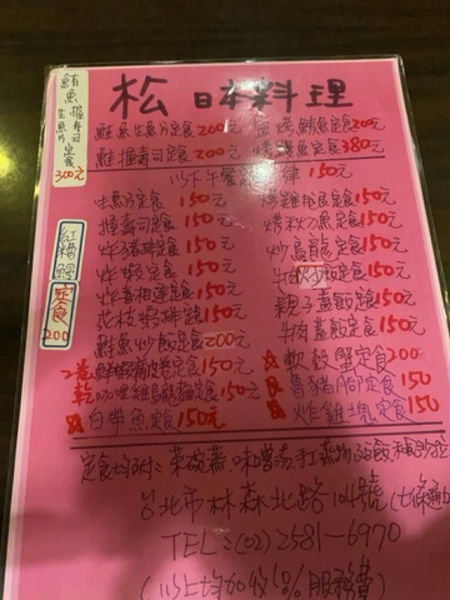 松 日本料理
鮪魚握壽司
生魚片定食
300元
鮭魚生魚片定食200元
鹽烤鯖魚定食200元
鮭握壽司定食 200元
烤鰻魚定食380元
以下午餐 一律 150元
生魚片定食 150元
烤雞腿定食150元
握壽司定食 150元
烤秋刀魚定食150元
炸豬排定食150元
炒烏龍定食150元
炸蝦定食 150元
牛肉炒飯定食150元
炸喜相逢定食150元
親子蓋飯定食150元
花枝蝦排定食150元
牛肉蓋飯定食150元
鮭魚炒飯定食200元
軟殼蟹定食200元
鮮蝦 捲定食150元
魯豬腳定食 150
咖哩雞烏龍麵定食150元
炸雞 定食150
白帶魚定食150元
紅糟鰻
定食
200
定食均附:茶碗蒸、味噌湯、手卷
台北市林森北路104號(七條通
TEL:(02)2581-6970
(以上均加收10%服務費)